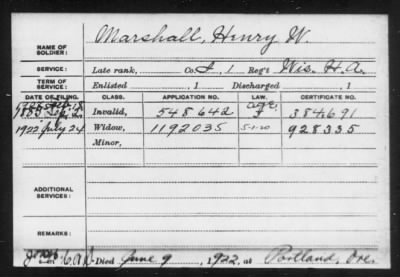 NAME OF SOLDIER: Marshall, Henry W.
SERVICE: Late rank, Co. I, 1 Reg't Wis. H.A.
TERM OF SERVICE: Enlisted , 1 Discharged , 1
DATE OF FILING. CLASS. APPLICATION NO. LAW. CERTIFICATE NO.
1885 Invalid, 548642 age 384,691
1922 July 24 Widow, 1192035 5-1-20 928335
Minor,
ADDITIONAL SERVICES:
Died June 9, 1922, at Portland, Ore.